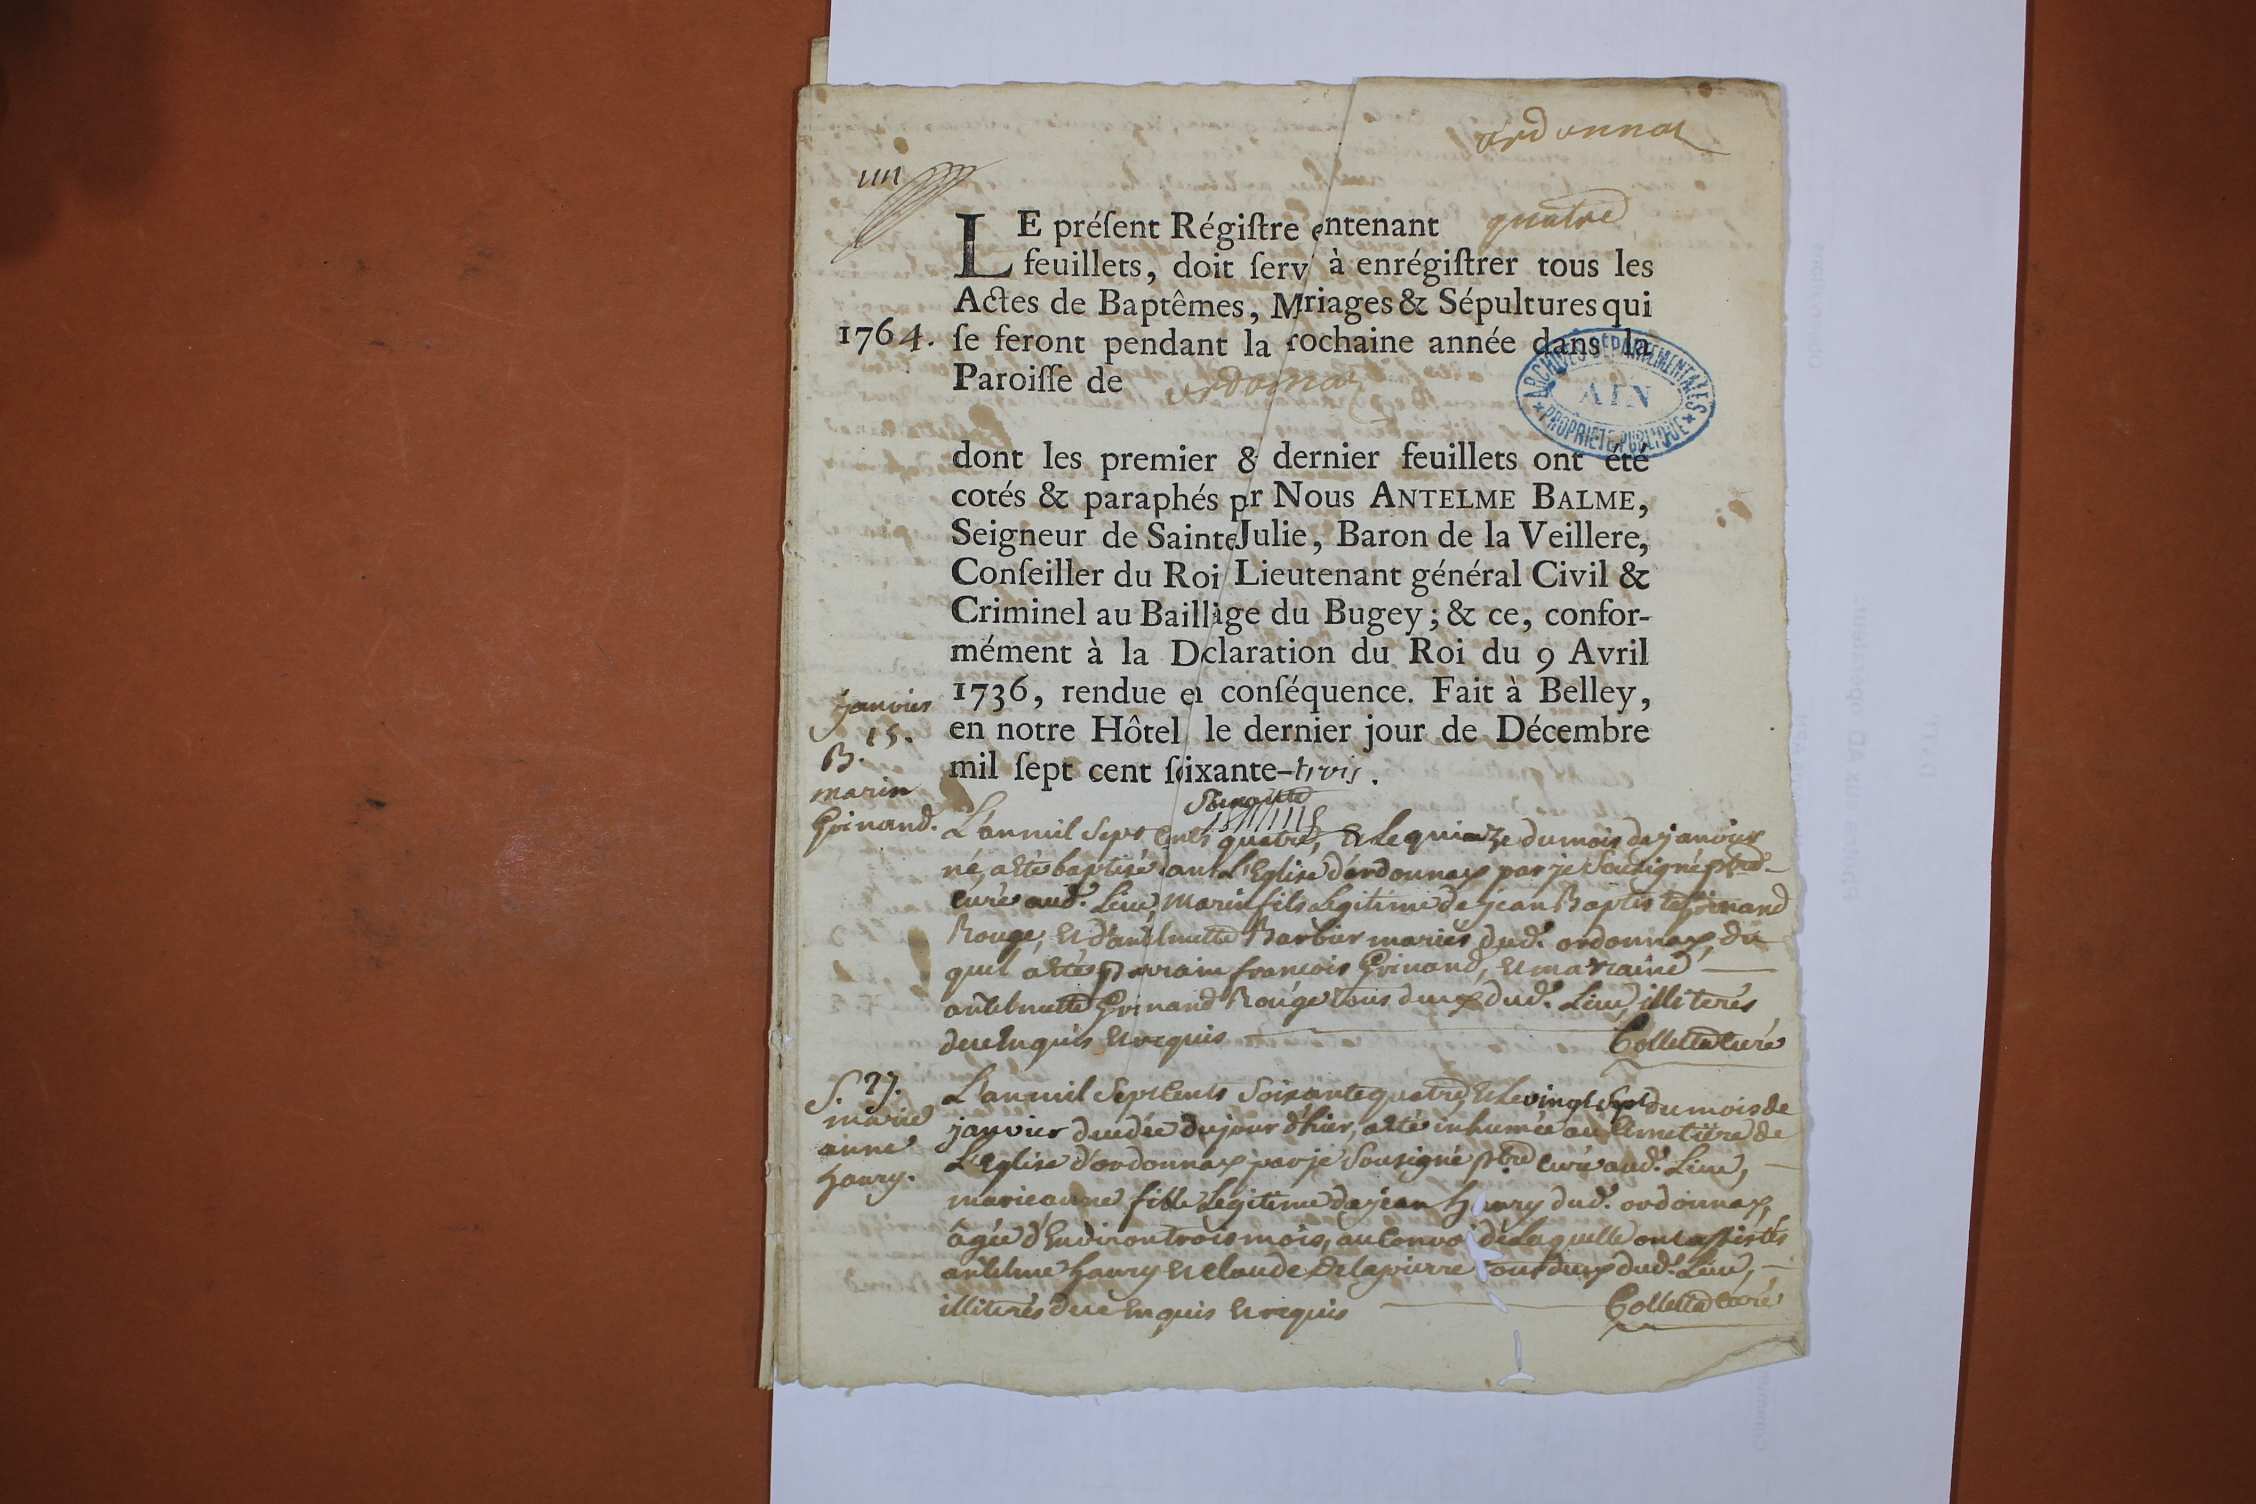 ordonnax
1111
LE préſent Régiſtre entenant quatre
feuillets, doit ſerv à enrégiſtrer tous les
Actes de Baptêmes, Mriages & Sépultures qui
1764. ſe feront pendant la rochaine année dans la
Paroiſſe de ordonnax
ARCHIVES DÉPARTEMENTALES
AIN
PROPRIÉTÉ PUBLIQUE
dont les premier & dernier feuillets ont été
cotés & paraphés pr Nous ANTELME BALME,
Seigneur de Sainte Julie, Baron de la Veillere,
Conſeiller du Roi Lieutenant général Civil &
Criminel au Bailliage du Bugey; & ce, confor-
mément à la Dclaration du Roi du 9 Avril
1736, rendue en conſéquence. Fait à Belley,
en notre Hôtel le dernier jour de Décembre
mil ſept cent ſoixante-trois.
janvier
15.
B.
marin
Grinand.
Soixante
L'an mil Sept Cents quatre, et le quinze du mois de janvier
né, a été baptisé dans L'Eglise d'ordonnax par je Sousigné ptre
curé aud. Lieu, marin fils Legitime de jean Baptiste Grinand
Rouge, et d'antelmette Barbier mariés dud. ordonnax, du
quel a été parrain francois Grinand, et marraine
antelmette Grinand Rouge tous deux dud. Lieu, illiterés
deue enquis et requis Colletta Curé
S. 27.
marie
anne
haury.
L'an mil Sept Cents Soixante quatre, et le vingt sept du mois de
janvier decédée du jour d'hier, a été inhumée au Cimetiere de
L'Eglise d'ordonnax par je Sousigné ptre curé aud. Lieu,
marie anne fille Legitime de jean haury dud. ordonnax,
âgée d'Environ trois mois, au Convoi de Laquelle ont assistés
antelme haury et claude Delapierre tous deux dud. Lieu,
illiterés deue enquis et requis Colletta Curé